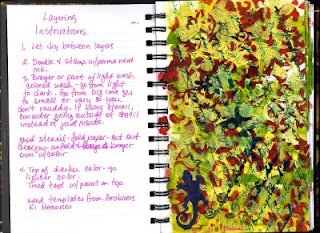 Layering
Instructions
1. Let dry between layers
2. Doodle & stamp w/permanent
ink.
3. Brayer or paint w/light wash
colored wash - go from light
to dark. Go from big images
to small or vary so you
don't muddy. If using stencil,
consider going outside of stencil
instead of just inside.
stencil - fold paper - cut out
design - unfold & brayer
over w/color
4. Top of darker color - go
lighter color.
Tried tape w/paint on top
used templates from Archivers
Ki Memories